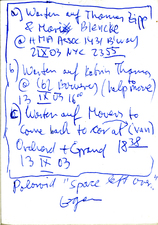 a) Warten auf Thomas Zipp
& Mario Blencke
@ HMA Assoc 1431 B'way
21 IX 03 NYC 23 55
b) Warten auf Kebin Thomas
@ (help move)
13 IX 03 16
c) Warten auf Movers to
come back to cor at (van)
Orchard + Grand 18 38
13 IX 03
Poloroid "space left over"